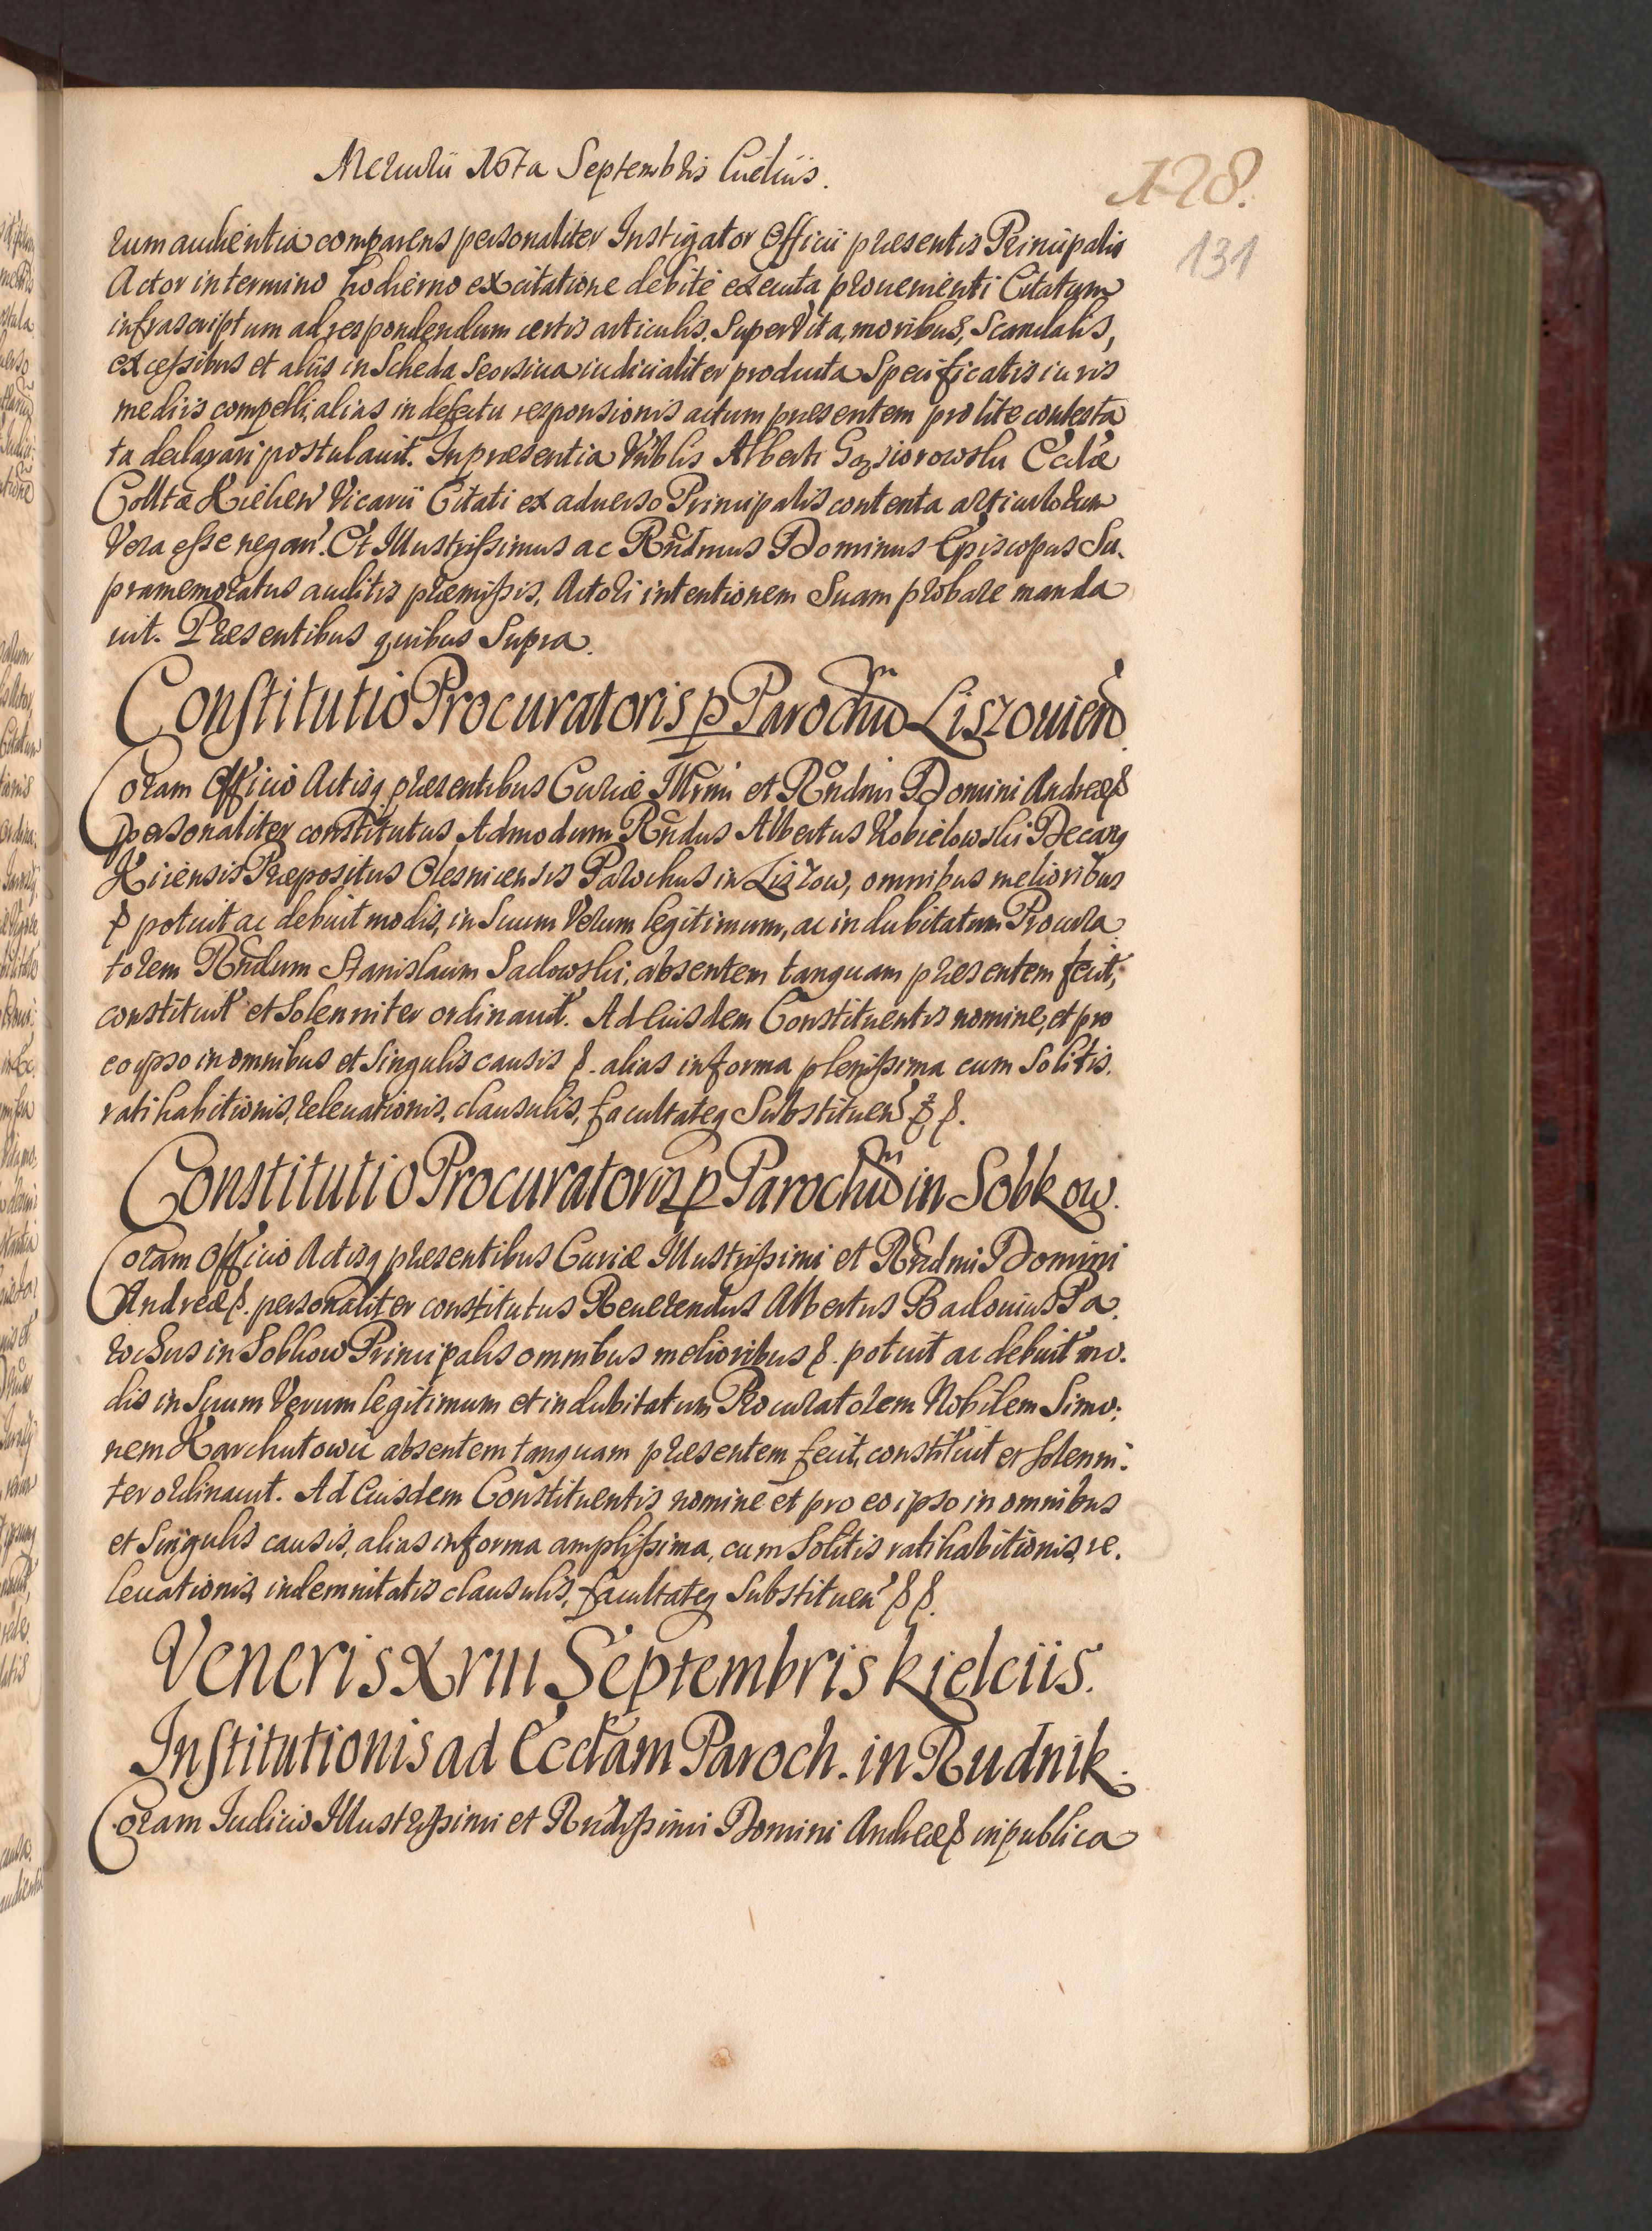 Mercurii 16ta Septembris Cielciis.
128.
131
rum audientia comparens personaliter Instigator Officii præsentis Principalis
Actor in termino hodierno ex citatione debite executa prouenienti Citatum
infrascriptum ad respondendum certis articulis, Super Vita, moribus, Scandalis,
excessibus et aliis in Scheda Seorsiua iudicialiter producta Specificatis iuris
mediis compelli, alias in defectu responsionis actum præsentem pro lite contesta
ta declarari postulauit. In præsentia Vnblis Alberti Gąsiorowski Ecclæ
Colltæ Kielcen Vicarii Citati ex aduerso Principalis contenta articulorum
Vera esse negan. Et Illustrissimus ac Rndmus Dominus Episcopus Su.
pramemoratus auditis præmissis, Actori intentionem Suam probare manda
uit. Præsentibus quibus Supra.
Constitutio Procuratoris p Parochum Liszouien
Coram Officio Actisq præsentibus Curiæ Illrmi et Rndmi Domini Andreæ &
personaliter constitutus Admodum Rndus Albertus Kobielowski Decang
Kiiensis Præpositus Olesnicensis Parochus in Liszow, omnibus melioribus
& potuit ac debuit modis, in Suum Verum legitimum, ac indubitatum Procura
torem Rndum Stanislaum Sadowski, absentem tanquam præsentem fecit,
constituit et Solenniter ordinauit. Ad Euisdem Constituentis nomine, et pro
eo ipso in omnibus et Singulis causis &. alias in forma plenissima cum Solitis.
ratihabitionis, releuationis, clausulis, facultateq Substituen & &.
Constitutio Procuratoris p Parochum in Sobkow.
Coram Officio Actisq præsentibus Curiæ Illustrissimi et Rndmi Domini
Andreæ &. personaliter constitutus Reuerendus Albertus Badouius Pa.
rochus in Sobkow Principalis omnibus melioribus &. potuit ac debuit mo.
dis in Suum Verum legitimum et indubitatum Procuratorem Nobilem Simo:
nem Karchutowic absentem tanquam præsentem fecit, constituit et Solenni:
ter ordinauit. Ad Euisdem Constituentis nomine et pro eo ipso in omnibus
et Singulis causis, alias in forma amplissima, cum Solitis ratihabitionis, re.
leuationis, indemnitatis clausulis, facultateq Substituen & &.
Veneris XVIII Septembris Kielciis.
Institutionis ad Ecclam Paroch. in Rudnik.
Coram Iudicio Illustrissimi et Rndissimi Domini Andreæ & in publica